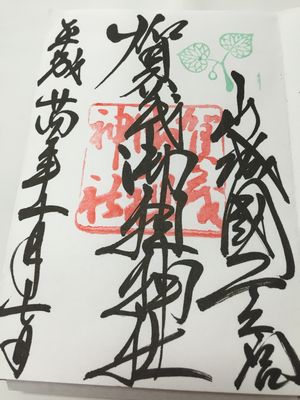 山城國一之宮
賀茂御祖神社
賀茂御祖神社
平成廿年十一月十七日